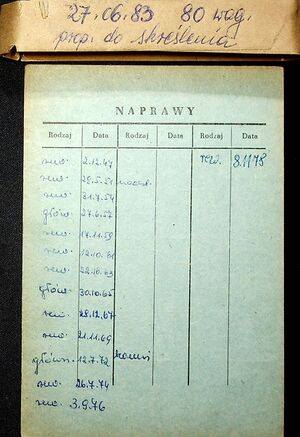 27.06.83 80 wag.
prop. do skreślenia
NAPRAWY
Rodzaj Data Rodzaj Data Rodzaj Data
rew. 2.12.47 rew. 8.11.78
rew. 29.5.51
rew. 31.7.54
głów. 27.6.57
rew. 17.11.59
rew. 12.10.61
rew. 22.10.63
głów. 30.10.65
rew. 28.12.67
rew. 21.11.69
główn. 12.7.72
rew. 26.7.74
rew. 3.9.76